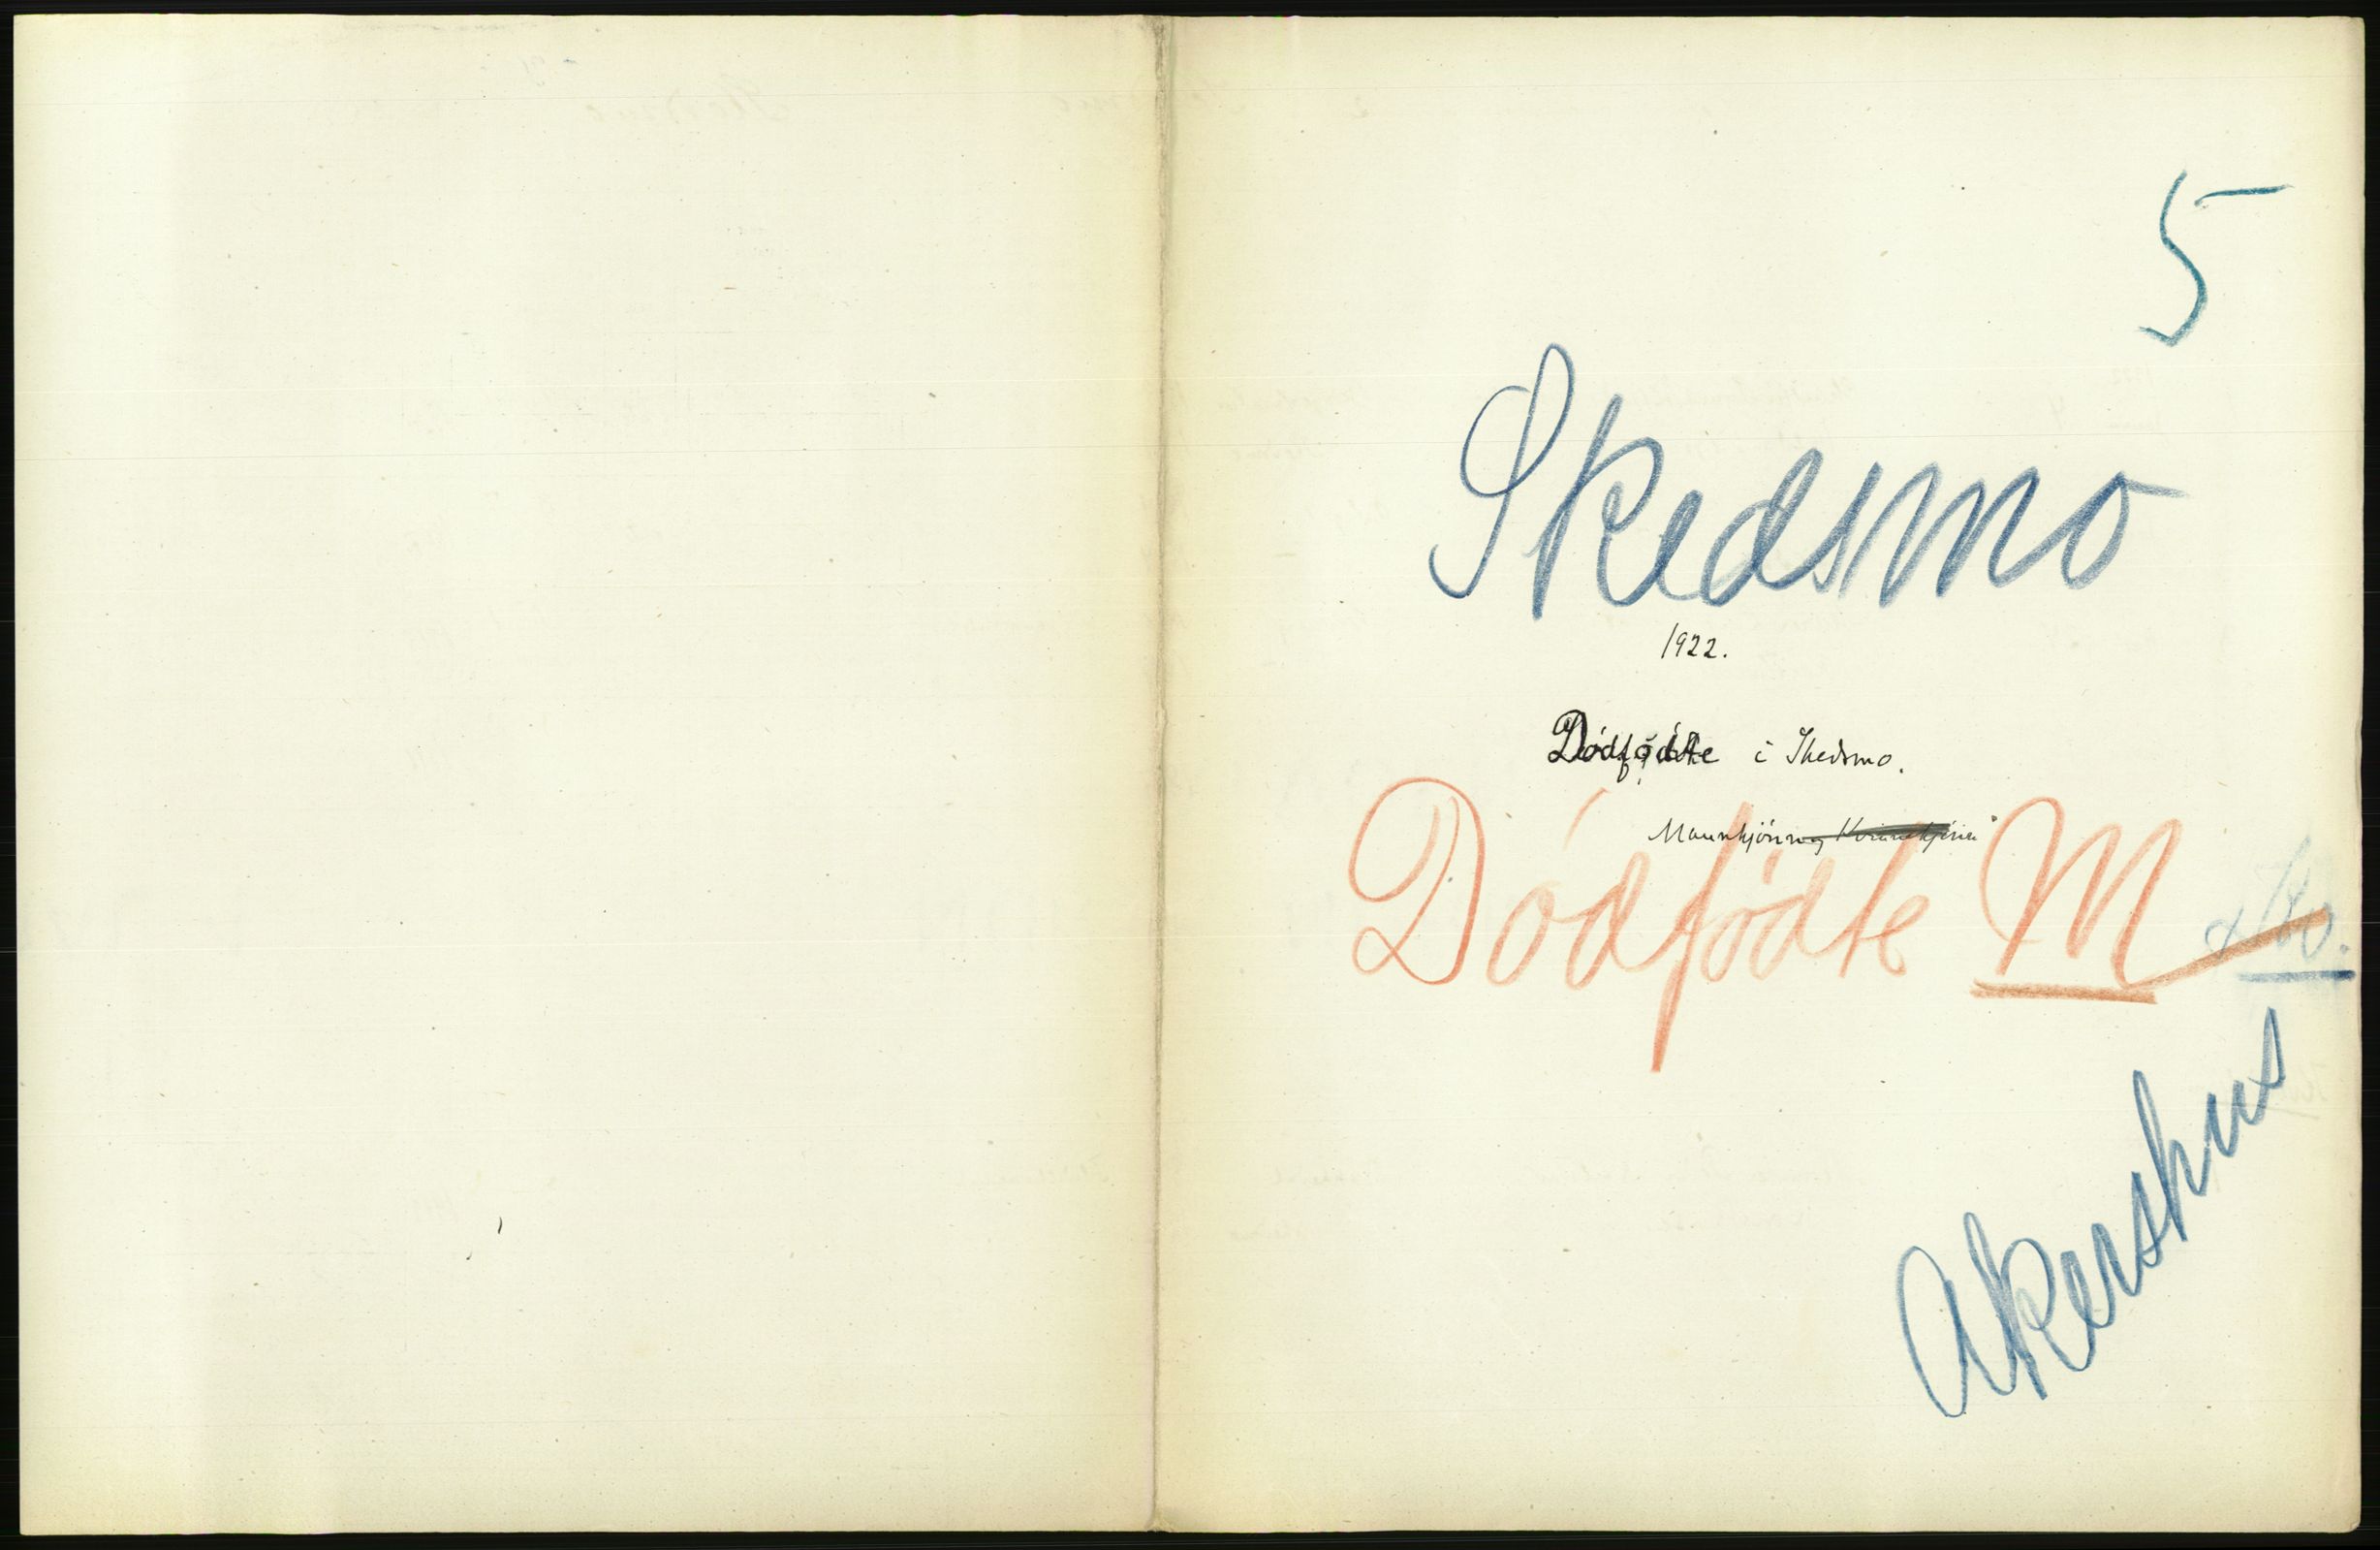 5
Skedsmo
1922.
Dödfödte i Skedsmo.
Mannkjönn og Kvinnekjönn
Dödfødte M & Kv.
Akershus